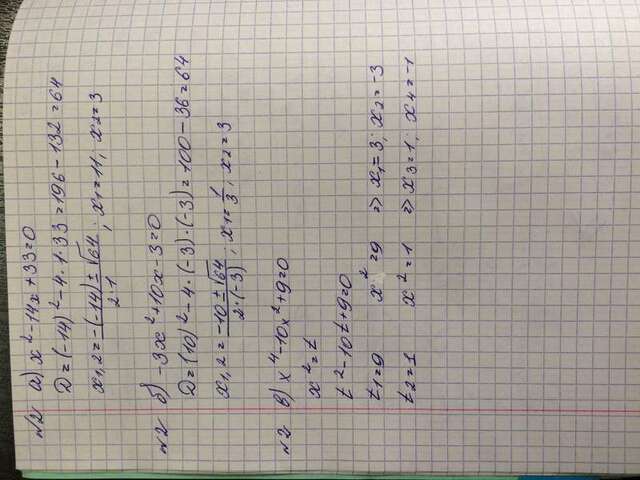 №2 а) x²-14x+33=0
D=(-14)²-4·1·33=196-132=64
x₁,₂=-(-14)±√64/2·1; x₁=11; x₂=3
№2 б) -3x²+10x-3=0
D=(10)²-4·(-3)·(-3)=100-36=64
x₁,₂=-10±√64/2·(-3); x₁=1/3; x₂=3
№2 в) x⁴-10x²+9=0
x²=t
t²-10t+9=0
t₁=9 x²=9 => x₁=3; x₂=-3
t₂=1 x²=1 => x₃=1; x₄=-1